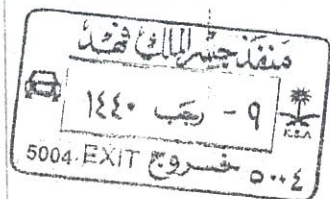 منفذ جسر الملك فهد
٩ - رجب ١٤٤٠
K.S.A
5004 EXIT خروج ٥٠٠٤